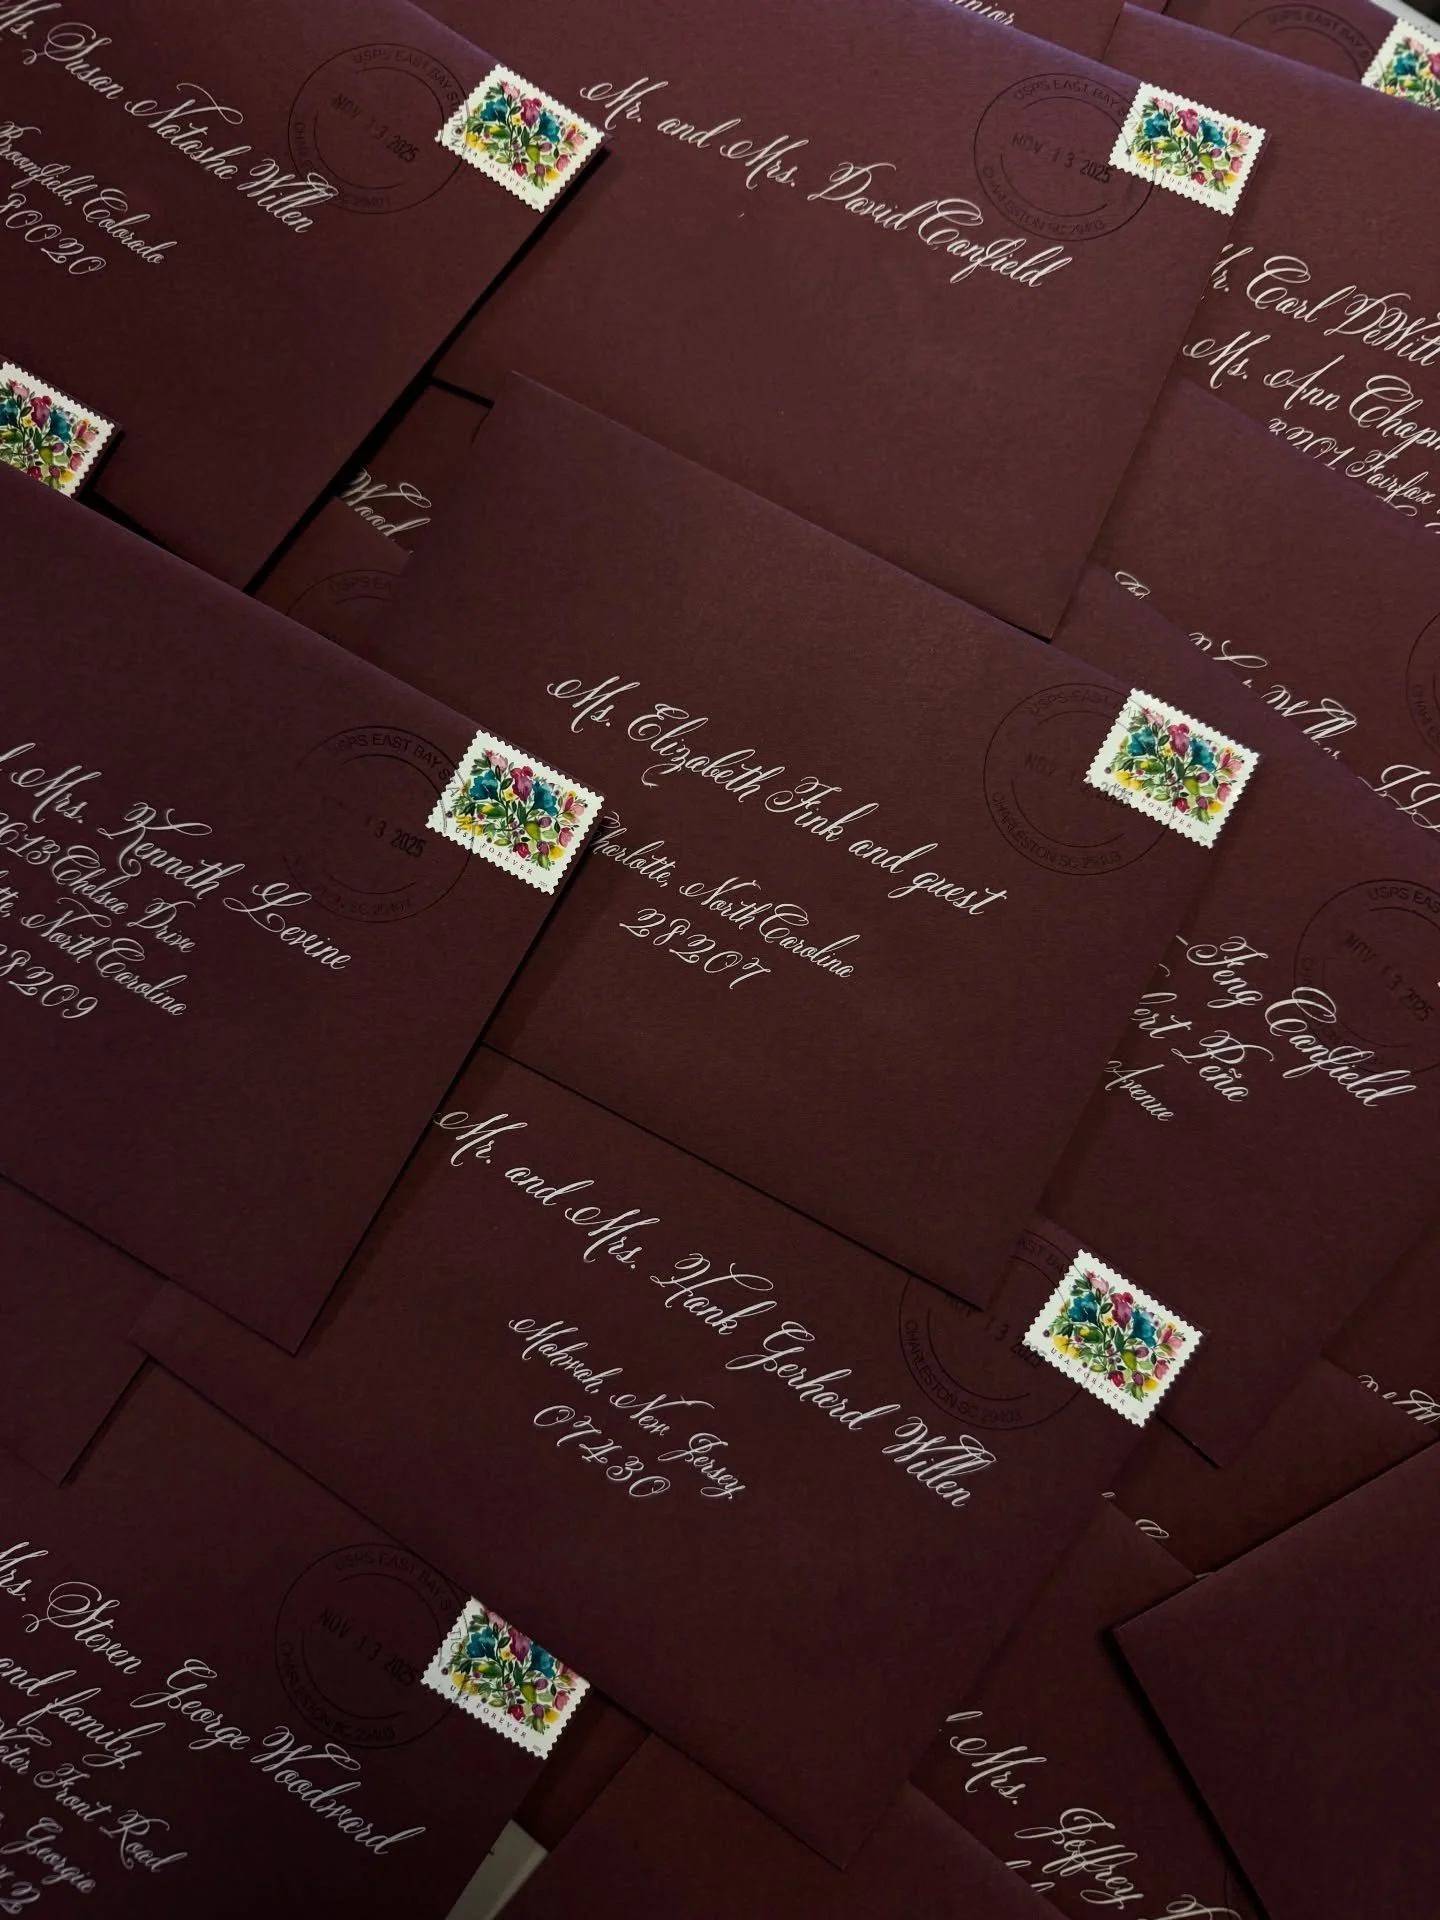 Ms. Susan Natasha Willen
Broomfield, Colorado
80020
USPS EAST BAY ST
NOV 13 2025
CHARLESTON SC 29403
USA FOREVER
Mr. and Mrs. David Canfield
USPS EAST BAY
NOV 13 2025
CHARLESTON SC 29403
FOREVER
Mr. Carl DeWitt
Ms. Ann
2201 Fairfax
Wood
USPS EAST BAY
Mrs. Kenneth Levine
Chelsea Drive
North Carolina
28209
USPS EAST BAY
13 2025
SC 29403
USA FOREVER
Ms. Elizabeth Fink and guest
Charlotte, North Carolina
28207
USPS EAST BAY
NOV 13
CHARLESTON SC 29403
USA FOREVER
Feng Canfield
Peña
Avenue
USPS EAST
NOV 13 2025
Mr. and Mrs. Hank Gerhard Willen
Mahwah, New Jersey
07430
13 2025
CHARLESTON SC 29403
USA FOREVER
Mrs. Steven George Woodward
and family
Front Road
Georgia
USPS EAST BAY
NOV 13 2025
CHARLESTON SC 29403
USA FOREVER
Mrs. Jeffrey